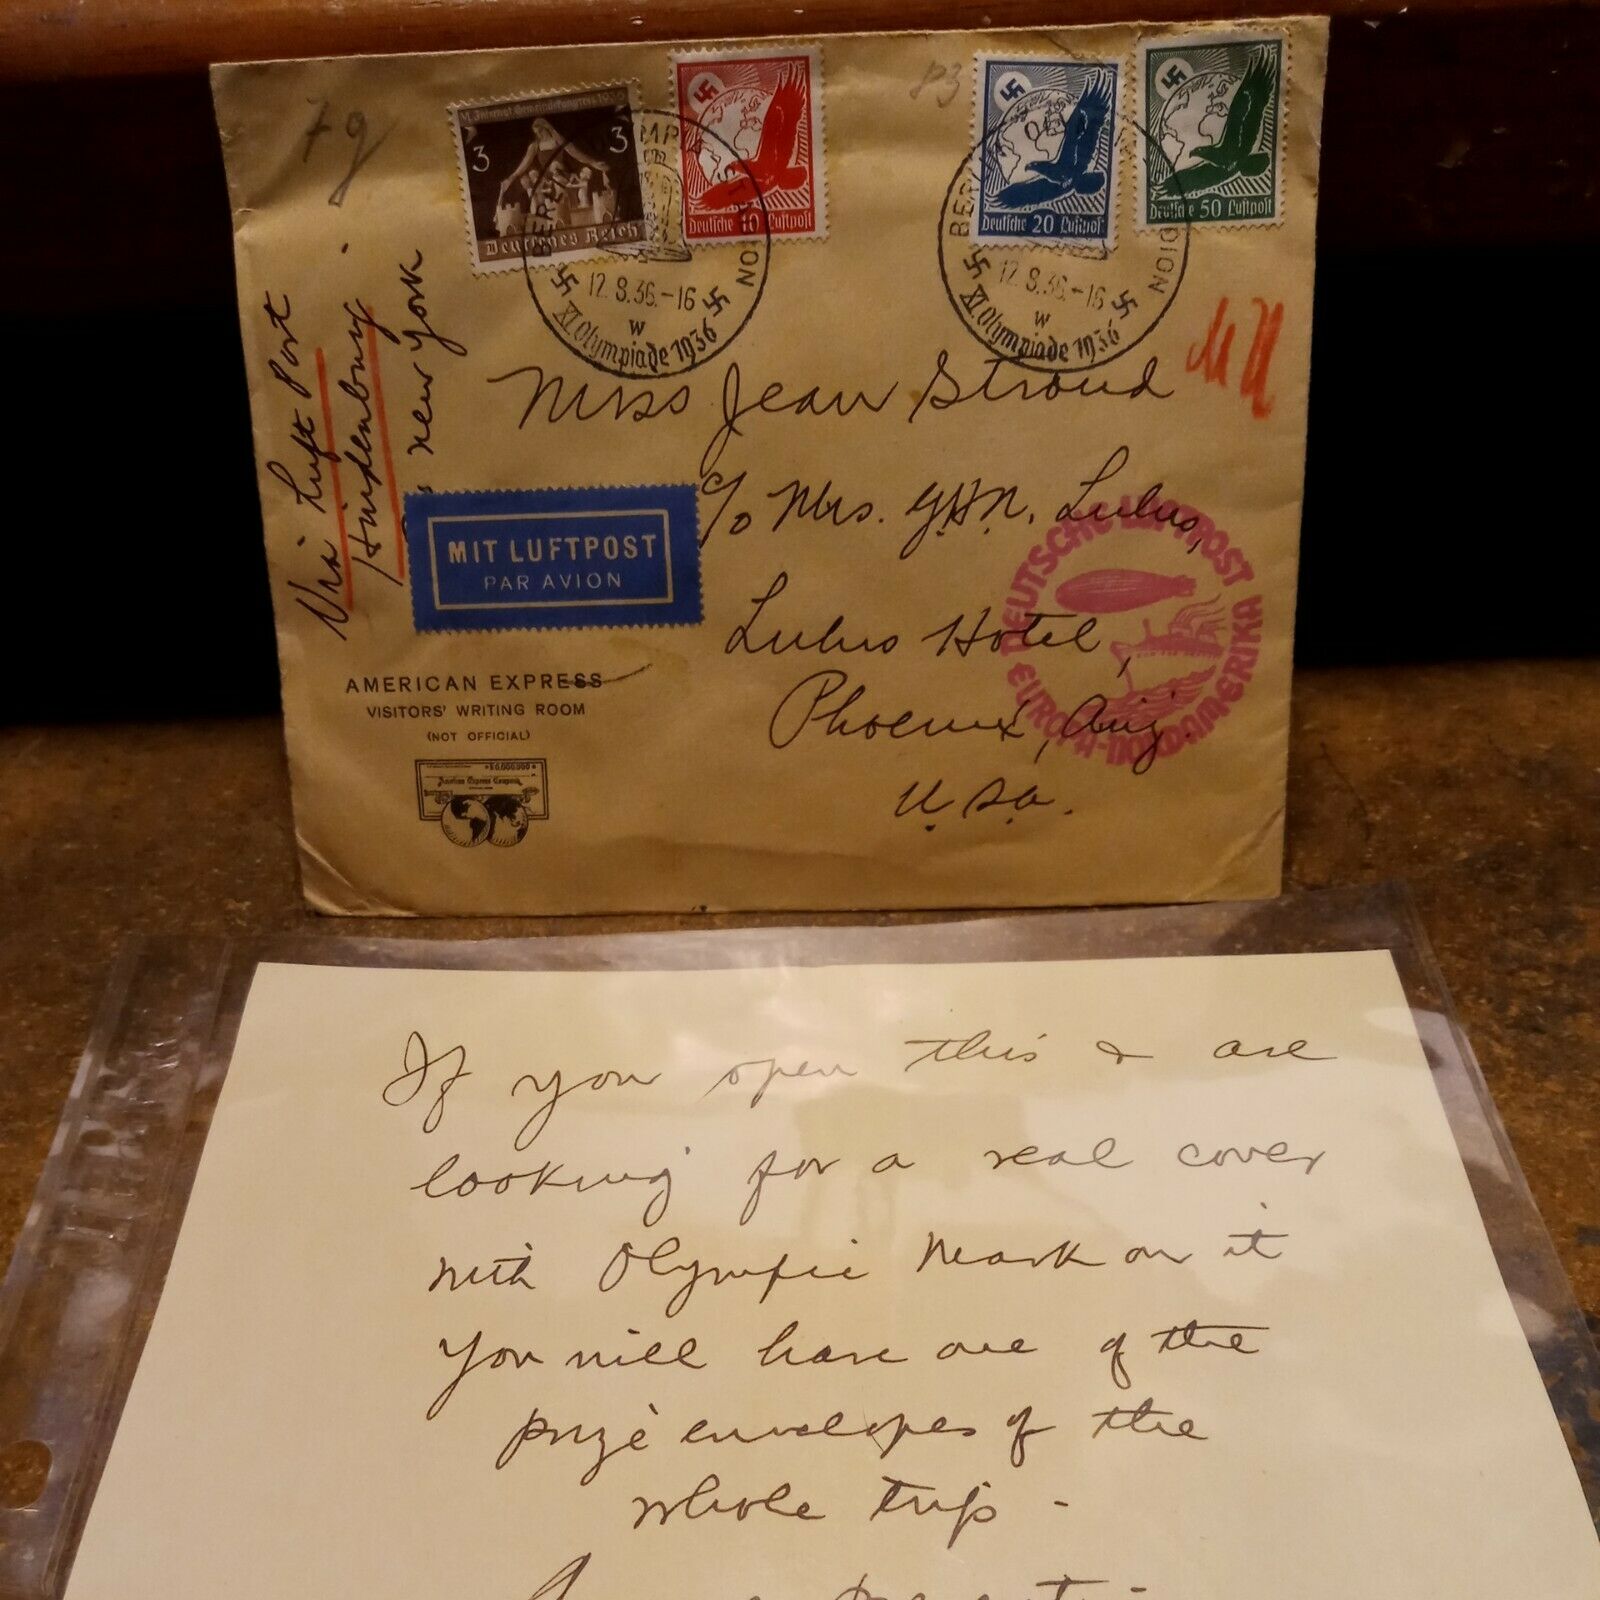 7g
83
VI. Internat. Gemeindekongress 1936
3 3
Deutsches Reich
Deutsche 10 Luftpost
Deutsche 20 Luftpost
Deutsche 50 Luftpost
BERLIN OLYMPIA STADION
12.8.36.-16
w
XI. Olympiade 1936
BERLIN OLYMPIA STADION
12.8.36.-16
w
XI. Olympiade 1936
Via Luft Post
Hindenburg
New York
Miss Jean Stroud
c/o Mrs. G.H.N. Luhrs,
Luhrs Hotel,
Phoenix, Ariz.
U.S.A.
MIT LUFTPOST
PAR AVION
DEUTSCHE LUFTPOST
EUROPA-NORDAMERIKA
AMERICAN EXPRESS
VISITORS' WRITING ROOM
(NOT OFFICIAL)
American Express Company
If you open this & are
looking for a real cover
with Olympic Mark on it
You will have one of the
prize envelopes of the
whole trip -